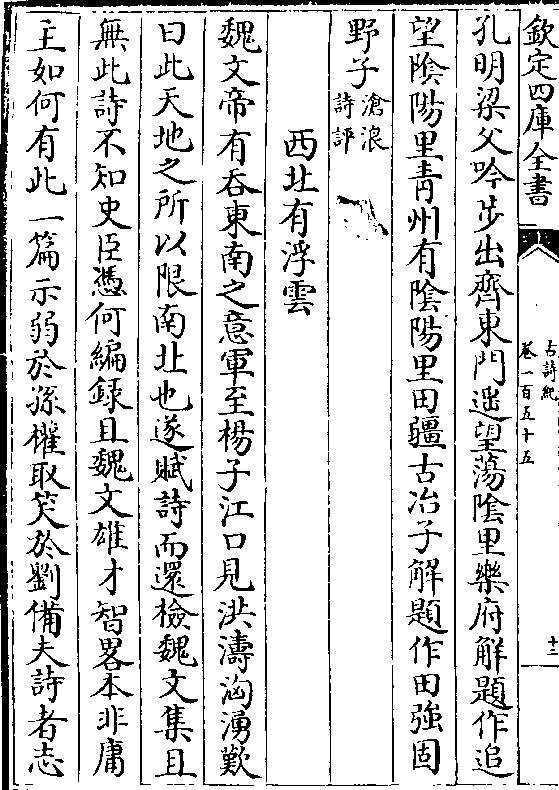 欽定四庫全書
古詩紀
卷一百五十五
十三
孔明梁父吟步出齊東門遥望蕩隂里樂府解題作追
望隂陽里青州有隂陽里田疆古冶子解題作田強固
野子滄浪
詩評
西北有浮雲
魏文帝有吞東南之意軍至楊子江口見洪濤洶湧歎
曰此天地之所以限南北也遂賦詩而還檢魏文集且
無此詩不知史臣憑何編録且魏文雄才智畧本非庸
主如何有此一篇示弱於孫權取笑於劉備夫詩者志